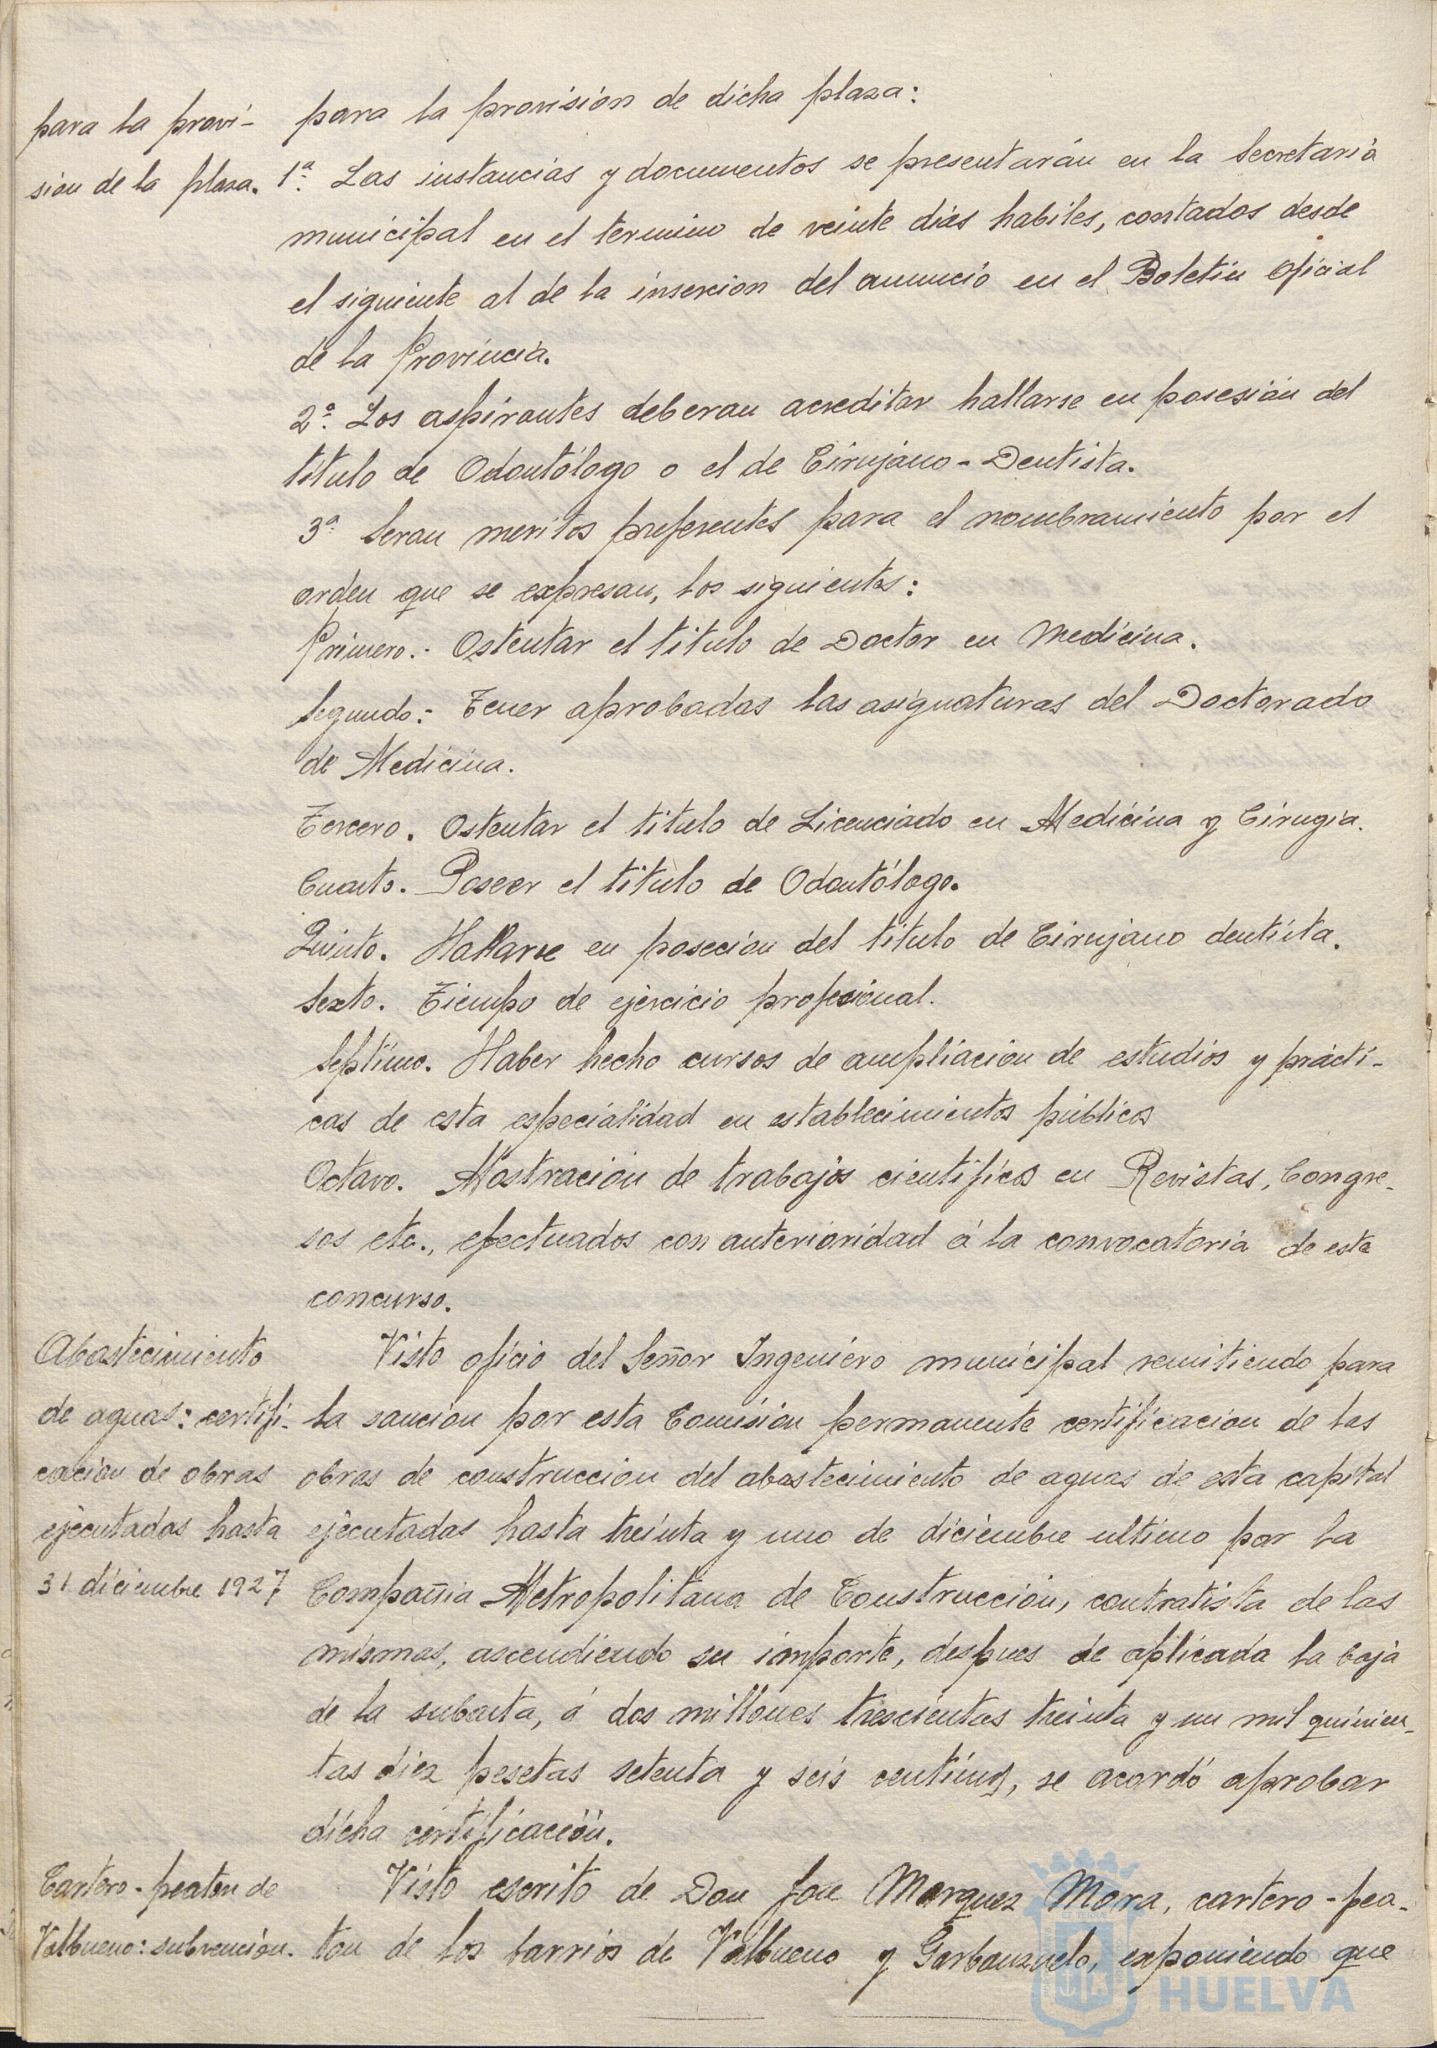 para la provi-
sion de la plaza.
para la provisión de dicha plaza:
1ª. Las instancias y documentos se presentarán en la Secretaria
municipal en el termino de veinte dias habiles, contados desde
el siguiente al de la insercion del anuncio en el Boletin Oficial
de la Provincia.
2ª. Los aspirantes deberan acreditar hallarse en posesión del
titulo de Odontólogo o el de Cirujano-Dentista.
3ª Seran meritos preferentes para el nombramiento por el
orden que se expresan, los siguientes:
Primero.- Ostentar el titulo de Doctor en Medicina.
Segundo.- Tener aprobadas las asignaturas del Doctorado
de Medicina.
Tercero. Ostentar el titulo de Licenciado en Medicina y Cirugia.
Cuarto. Poseer el titulo de Odontólogo.
Quinto. Hallarse en posecion del titulo de Cirujano dentista.
Sexto. Tiempo de ejercicio profesional.
Septimo. Haber hecho cursos de ampliacion de estudios y prácti-
cas de esta especialidad en establecimientos públicos
Octavo. Mostración de trabajos cientificos en Revistas, Congre-
sos etc., efectuados con anterioridad á la convocatoria de este
concurso.
Abastecimiento
de aguas: certifi-
cacion de obras
ejecutadas hasta
31 diciembre 1927
Visto oficio del Señor Ingeniero municipal remitiendo para
la sancion por esta Comisión permanente certificacion de las
obras de construccion del abastecimiento de aguas de esta capital
ejecutadas hasta treinta y uno de diciembre ultimo por la
Compañia Metropolitana de Construcción, contratista de las
mismas, ascendiendo su importe, despues de aplicada la baja
de la subasta, á dos millones trescientas treinta y un mil quinien-
tas diez pesetas setenta y seis centims, se acordó aprobar
dicha certificación.
Cartero-peaton de
Valbueno: subvencion.
Visto escrito de Don Jose Marquez Mora, cartero-pea-
ton de los barrios de Valbueno y Garbanzuelo, exponiendo que
HUELVA